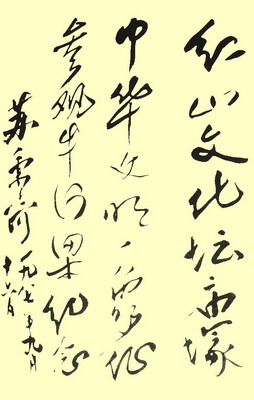 红山文化坛庙塚
中华文明一象征
参观牛河梁纪念
苏秉琦 一九八七年九月